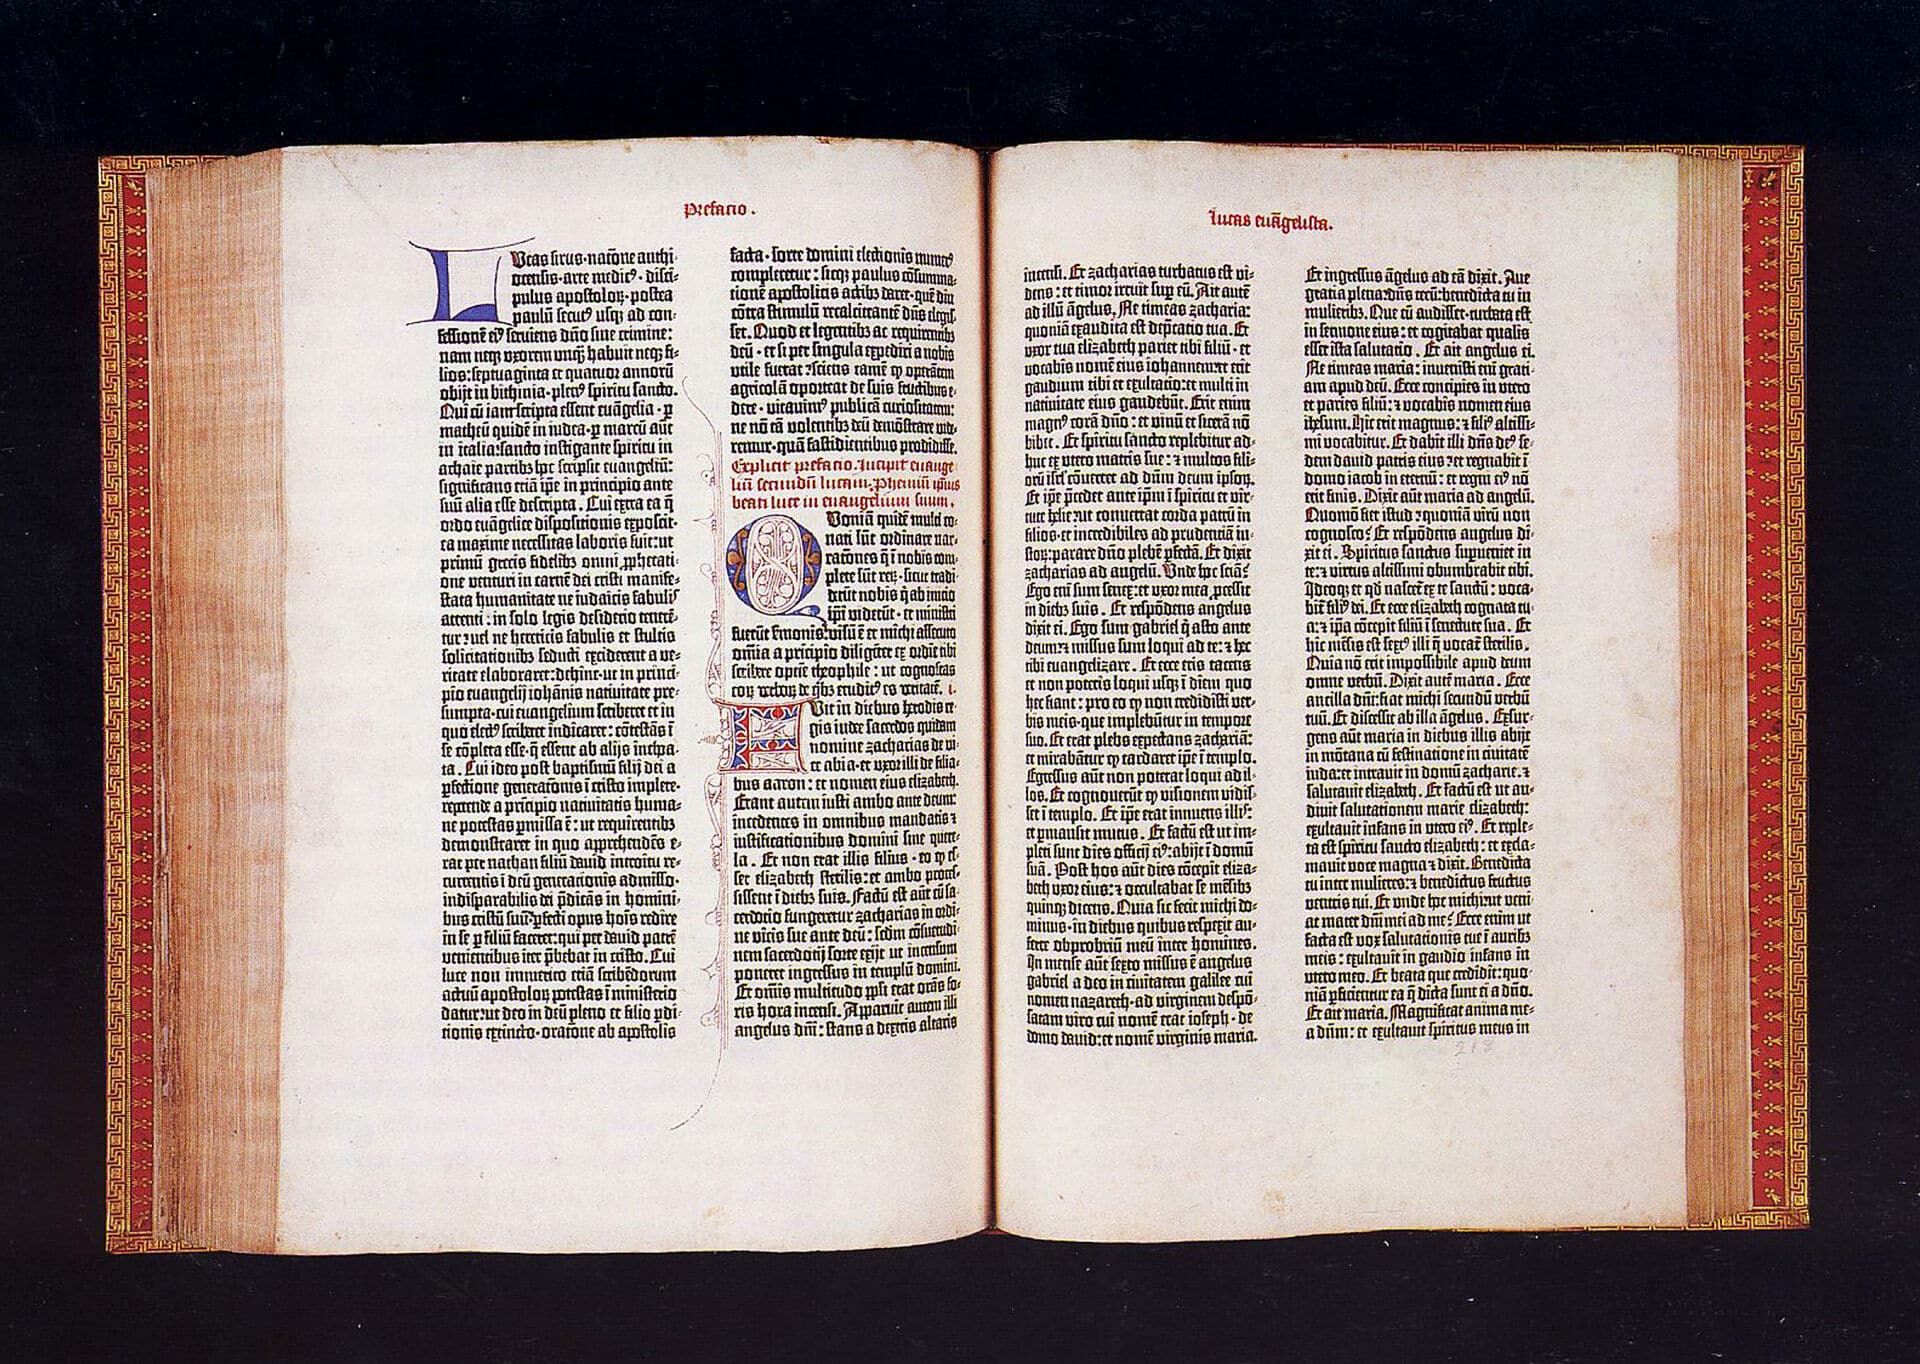 Prefacio.
LVcas sirus·natōne anthi-
ocensis·arte medicꝰ·disci-
pulus apostoloꝝ·postea
paulū secutꝰ usqꝫ ad con-
fessionē eiꝰ seruiens dño sine crimine:
nam neqꝫ vxorem unqꝫ habuit neqꝫ fi-
lios:septuaginta et quatuor annorū
obijt in bithinia·plenꝰ spiritu sancto.
Qui cū iam scripta essent euāgelia·ꝑ
matheū quidē in iudea·ꝑ marcū aūt
in italia:sancto instigante spiritu in
achaie partibꝫ hoc scripsit euangeliū:
significans eciā ipē in principio ante
suū alia esse descripta. Cui extra ea q̄
ordo euāgelice dispositionis exposcit·
ea maxime necessitas laboris fuit:ut
primū grecis fidelibꝫ omni ꝓphetati-
one venturi in carnē dei cristi manife-
stata humanitate ne iudaicis fabulis
attenti: in solo legis desiderio tenerē-
tur:vel ne hereticis fabulis et stultis
solicitationibꝫ seducti exciderent a ve-
ritate elaboraret:dehinc·ut in princi-
pio euangelij iohānis natiuitate pre-
sumpta·cui euangelium scriberet et in
quo electꝰ scriberet indicaret: cōtestās ī
se cōpleta esse·q̄ essent ab alijs inchoa-
ta. Cui ideo post baptismū filij dei a
ꝑfectione generatōnis ī cristo implete·
repetende a prīcipio natiuitatis huma-
ne potestas ꝑmissa ē: ut requirentibꝫ
demonstraret in quo apprehendēs e-
rat per nathan filiū dauid introitu re-
currentis ī deū generationis admisso·
indisparabilis dei p̄dicās in homini-
bus cristū suū·ꝑfecti opus hoīs redire
in se ꝑ filiū faceret:qui per dauid patrē
venientibus iter p̄bebat in cristo. Cui
luce non immerito eciā scribēdorum
actuū apostoloꝝ potestas ī ministerio
datur:ut deo in deū pleno et filio ꝑdi-
tionis extincto·oratōne ab apostolis
facta·sorte domini electionis numerꝰ
compleretur: sicqꝫ paulus cōsumma-
tionē apostolicis actibꝫ daret·quē diu
cōtra stimulū recalcitrantē dñs elegis-
set. Quod et legentibꝫ ac requirentibꝫ
deū·et si per singula expediri a nobis
vtile fuerat:sciens tamē ꝙ operātem
agricolā oporteat de suis fructibus e-
dere·vitauimꝰ publicā curiositatem:
ne nō tā volentibꝫ deū demōstrare vide-
remur·quā fastidientibus prodidisse.
Explicit prefacio. Incipit euange-
liū secundū lucam. Prhemiū ipsius
beati luce in euangelium suum.
QVoniā quidē multi co-
nati sūt ordinare nar-
ratōnes q̄ ī nobis com-
plete sūt reꝝ·sicut tradi-
derūt nobis q̄ ab inicio
ip̄i viderūt·et ministri
fuerūt ẜmonis:visū ē et michi assecuto
om̄ia a prīcipio diligēter ex ordīe tibi
scribere optīe theophile: ut cognoscas
eoꝝ verboꝝ de q̄bꝫ eruditꝰ es veritatē. i.
FVit in diebus herodis re-
gis iudee sacerdos quidam
nomine zacharias de vi-
ce abia·et vxor illi de filia-
bus aaron: et nomen eius elizabeth.
Erant autem iusti ambo ante deum:
incedentes in omnibus mandatis ⁊
iustificationibus domini sine quere-
la. Et non erat illis filius·eo ꝙ es-
set elizabeth sterilis:et ambo proces-
sissent ī diebꝫ suis. Factū est aūt cū sa-
cerdotio fungeretur zacharias in ordi-
ne vicis sue ante deū: scd̄m cōsuetudi-
nem sacerdotij sorte exijt ut incensum
poneret ingressus in templū domini.
Et om̄is multitudo ppl̄i erat orās fo-
ris hora incensi. Apparuit autem illi
angelus dn̄i: stans a dextris altaris
lucas euāgelista.
incensi. Et zacharias turbatus est vi-
dens: et timor irruit suꝑ eū. Ait autē
ad illū āgelus, Ne timeas zacharia:
quoniā exaudita est dep̄catio tua. Et
vxor tua elizabeth pariet tibi filiū·et
vocabis nomē eius iohannem:et erit
gaudium tibi et exultacio:et multi in
natiuitate eius gaudebūt. Erit enim
magnꝰ corā dño: et vinū et siceră nō
bibet. Et spiritu sancto replebitur ad-
huc ex vtero matris sue: ⁊ multos fili-
orū isrl̄ cōuertet ad dn̄m deum ipsoꝝ.
Et ip̄e p̄cedet ante ip̄m ī spiritu et vir-
tute helie:ut conuertat corda patrū in
filios·et incredibiles ad prudenciā iu-
stoꝝ:parare dño plebē ꝑfectā. Et dixit
zacharias ad angelū. Unde hoc sciā?
Ego enī sum senex:et vxor mea ꝓcessit
in diebꝫ suis. Et respōdens angelus
dixit ei. Ego sum gabriel q̄ asto ante
deum:⁊ missus sum loqui ad te: ⁊ hec
tibi euangelizare. Et ecce eris tacens
et non poteris loqui usqꝫ ī diem quo
hec fiant: pro eo ꝙ non credidisti ver-
bis meis·que implebūtur in tempore
suo. Et erat plebs expectans zachariā:
et mirabātur ꝙ tardaret ip̄e ī templo.
Egressus aūt non poterat loqui ad il-
los. Et cognouerūt ꝙ visionem vidis-
set ī templo. Et ip̄e erat innuens illis:
et ꝑmansit mutus. Et factū est ut im-
pleti sunt dies officij eiꝰ:abijt ī domū
suā. Post hos aūt dies cōcepit eliza-
beth vxor eius: ⁊ occultabat se mēsibꝫ
quinqꝫ dicens. Quia sic fecit michi do-
minus·in diebus quibus respexit au-
ferre obprobriū meū inter homines.
In mense aūt sexto missus ē angelus
gabriel a deo in ciuitatem galilee cui
nomen nazareth·ad virginem despō-
satam viro cui nomē erat ioseph·de
domo dauid:et nomē virginis maria.
Et ingressus āgelus ad eā dixit. Aue
gratia plena:dn̄s tecū:benedicta tu in
mulieribꝫ. Que cū audisset·turbata est
in sermone eius: et cogitabat qualis
esset ista salutacio. Et ait angelus ei.
Ne timeas maria: inuenisti enī grati-
am apud deū. Ecce concipies in vtero
et paries filiū: ⁊ vocabis nomen eius
ihesum. Hic erit magnus: ⁊ filiꝰ altissi-
mi vocabitur. Et dabit illi dn̄s deꝰ se-
dem dauid patris eius:et regnabit ī
domo iacob in eternū: et regni eiꝰ nō
erit finis. Dixit aūt maria ad angelū.
Quomō fiet istud:quoniā virū non
cognosco? Et respōdens angelus di-
xit ei. Spiritus sanctus supueniet in
te:⁊ virtus altissimi obumbrabit tibi.
Ideoqꝫ et qd̄ nascet̄ ex te sanctū: voca-
bit̄ filiꝰ dei. Et ecce elizabeth cognata tu-
a:⁊ ip̄a cōcepit filiū ī senectute sua. Et
hic mēsis est sextꝰ illi q̄ vocat̄ sterilis.
Quia nō erit impossibile apud deum
omne verbū. Dixit aūt maria. Ecce
ancilla dn̄i:fiat michi secundū verbū
tuū. Et discessit ab illa āgelus. Exsur-
gens aūt maria in diebus illis abijt
in mōtana cū festinatione in ciuitatē
iuda:et intrauit in domū zacharie·⁊
salutauit elizabeth. Et factū est ut au-
diuit salutationem marie elizabeth:
exultauit infans in vtero eiꝰ. Et reple-
ta est spiritu sancto elizabeth: et excla-
mauit voce magna ⁊ dixit. Benedicta
tu inter mulieres:⁊ benedictus fructus
ventris tui. Et unde hoc michi:ut veni-
at mater dn̄i mei ad me? Ecce enim ut
facta est vox salutationis tue ī auribꝫ
meis: exultauit in gaudio infans in
vtero meo. Et beata que credidit:quo-
niā ꝑficientur ea q̄ dicta sunt ei a dño.
Et ait maria. Magnificat anima me-
a dn̄m: et exultauit spiritus meus in
218